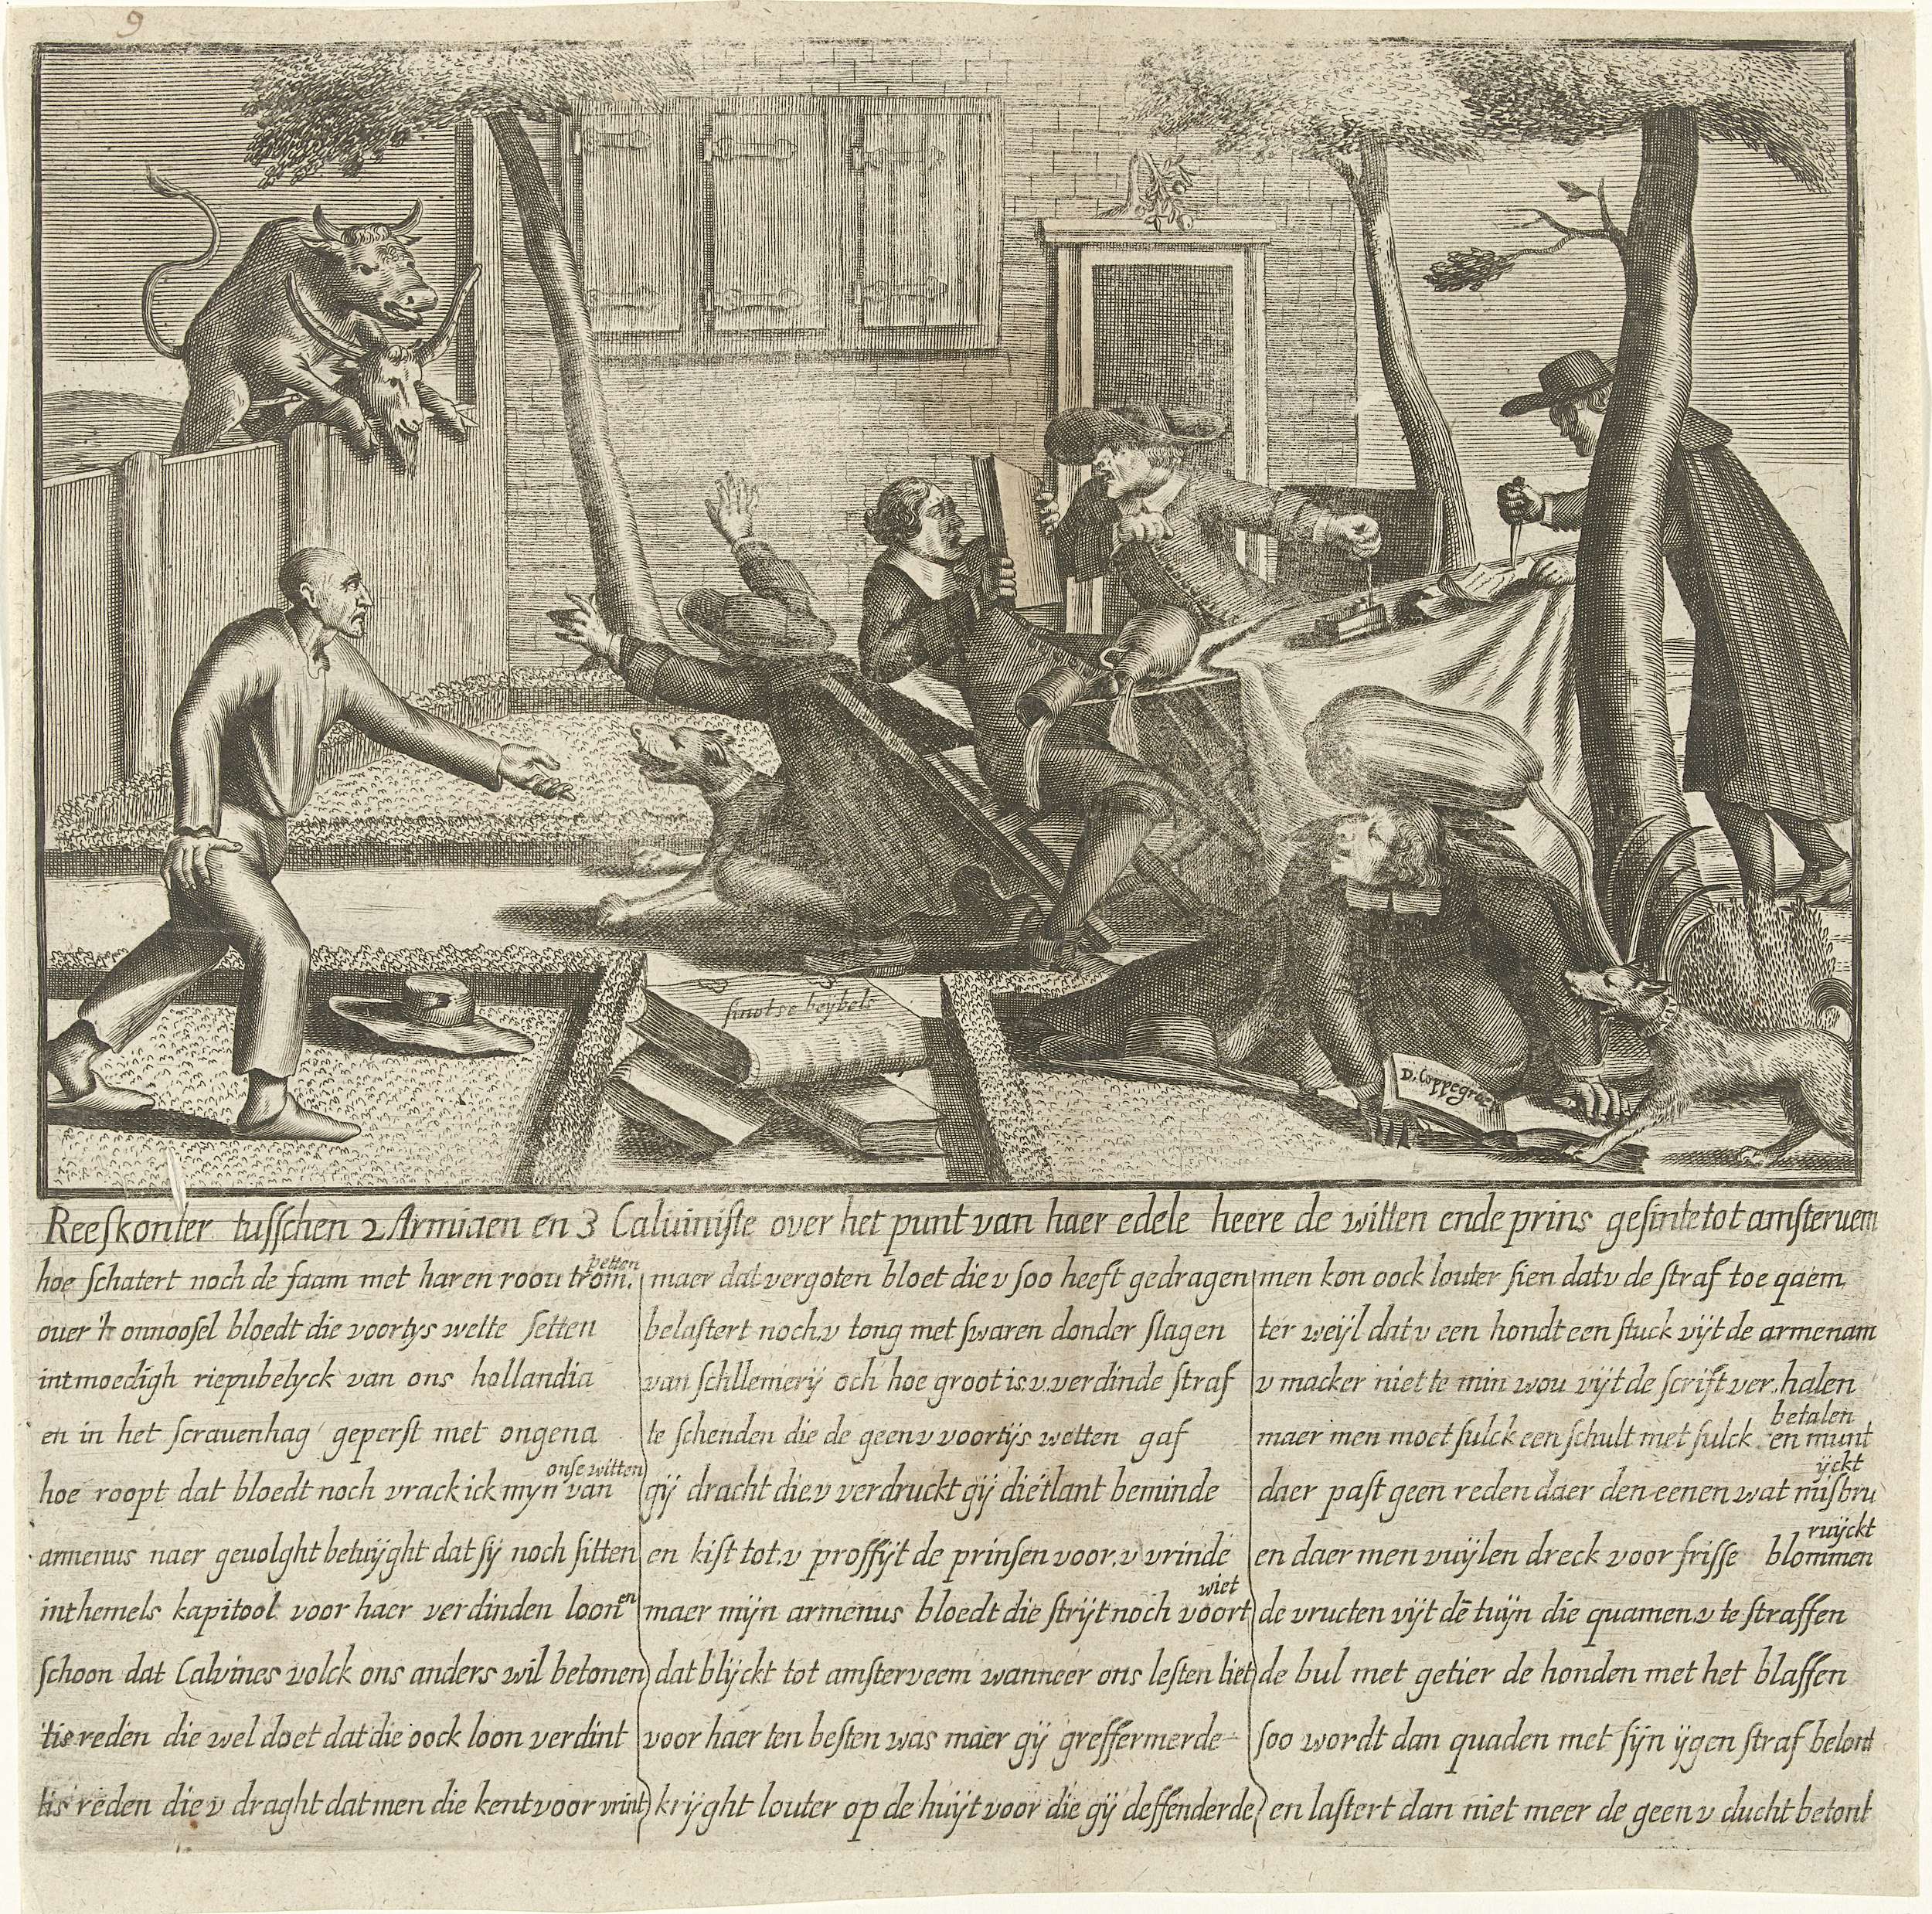 9
snotse beybels
D. Coppegra
Reeskonter tusschen 2 Armiaen en 3 Calviniste over het punt van haer edele heere de witten ende prins gesintetot amsteruem
hoe schatert noch de faam met haren roou trom petten
over 'h onnoosel bloedt die voortys wette setten
intmoedigh riepubelyck van ons hollandia
en in het scrauenhag geperst met ongena
hoe roopt dat bloedt noch vrack ick myn van onse witten
armenus naer gevolght betuyght dat sy noch sitten
inthemels kapitool voor haer verdinden loonen
schoon dat Calvines volck ons anders wil betonen
'tis reden die wel doet dat die oock loon verdint
tis reden die v draght dat men die kent voor vrint
maer dat vergoten bloet die v soo heeft gedragen
belastert noch v tong met swaren donder slagen
van schllemerÿ och hoe groot is v verdinde straf
te schenden die de geen v voortÿs wetten gaf
gÿ dracht die v verdruckt gÿ die tlant beminde
en kist tot v proffÿt de prinsen voor v vrinde
maer mÿn armenus bloedt die strÿt noch voort wiet
dat blÿckt tot amsterveem wanneer ons lesten liet
voor haer ten besten was maer gÿ greffermerde
krÿght louter op de huÿt voor die gÿ deffenderde
men kon oock louter sien dat v de straf toe qaem
ter weÿl dat v een hondt een stuck vÿt de armenam
v macker niet te min wou vÿt de scrift ver halen
maer men moet sulck een schult met sulck en munt betalen
daer past geen reden daer den eenen wat misbru ÿckt
en daer men vuÿlen dreck voor frisse blommen ruÿckt
de vructen vÿt dē tuÿn die quamen v te straffen
de bul met getier de honden met het blaffen
soo wordt dan quaden met sÿn ÿgen straf belont
en lastert dan niet meer de geen v ducht betont